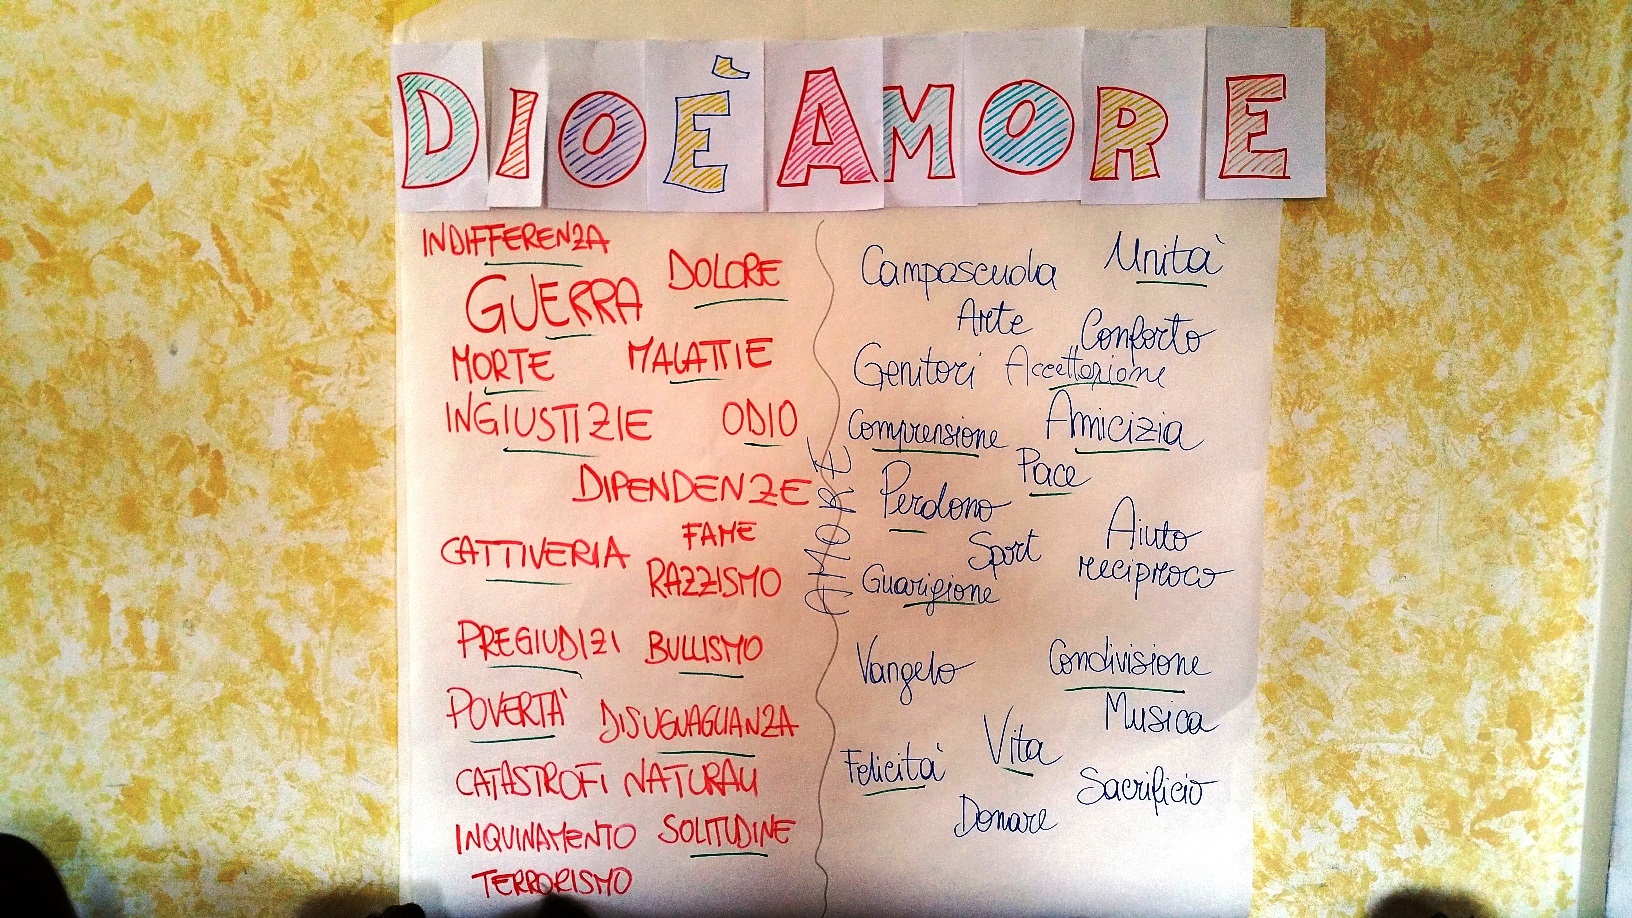 DIO È AMORE
INDIFFERENZA
DOLORE
GUERRA
MORTE MALATTIE
INGIUSTIZIE ODIO
DIPENDENZE
FAME
CATTIVERIA
RAZZISMO
PREGIUDIZI BULLISMO
POVERTA' DISUGUAGLIANZA
CATASTROFI NATURALI
INQUINAMENTO SOLITUDINE
TERRORISMO
AMORE
Camposcuola Unità
Arte Conforto
Genitori Accettazione
Comprensione Amicizia
Pace
Perdono
Sport Aiuto
reciproco
Guarigione
Vangelo Condivisione
Musica
Felicità Vita
Sacrificio
Donare